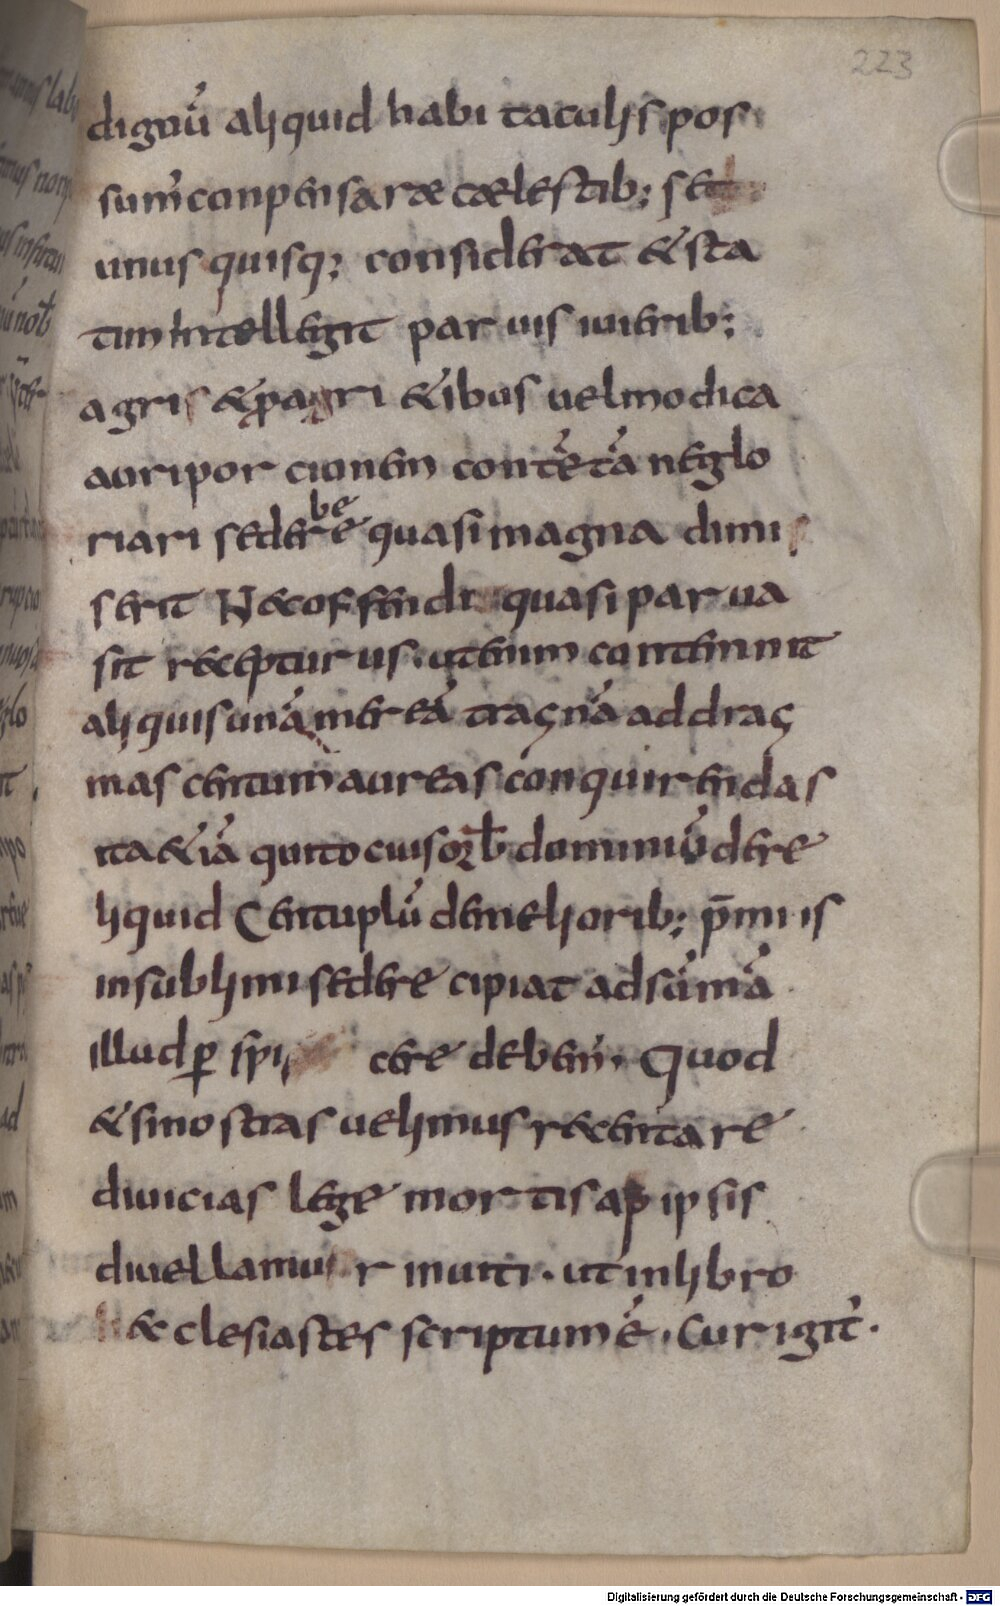 223
dignū aliquid habi taculis pos
sum̄ conpensarae caelestib; sed
unus quisq; considerat & sta
tim intellegit paruis iuuerib;
agris & pagri & ibus uel modica
auri porcionem contētā ne glo
riari se deberee quasi magna dimi
serit Nec offendi quasi parua
sit recepturus. ut enim contemnit
aliquis unā mereā traçnā ad draç
mas centum aureas conquirendas
ita & iā qui tocius orb̄ dominiū dere
liquid Centuplū demelioribus; p̄miis
in sublimi sede recipiat ad sūmā
illud ꝑ spi cere debem̄. Quod
& si nostras uelimus retentare
diuicias lege mortis ap ipsis
diuellamu r inuiti. ut in libro
ecclesiastes scriptum ē. Cur igit̄.
Digitalisierung gefördert durch die Deutsche Forschungsgemeinschaft - DFG